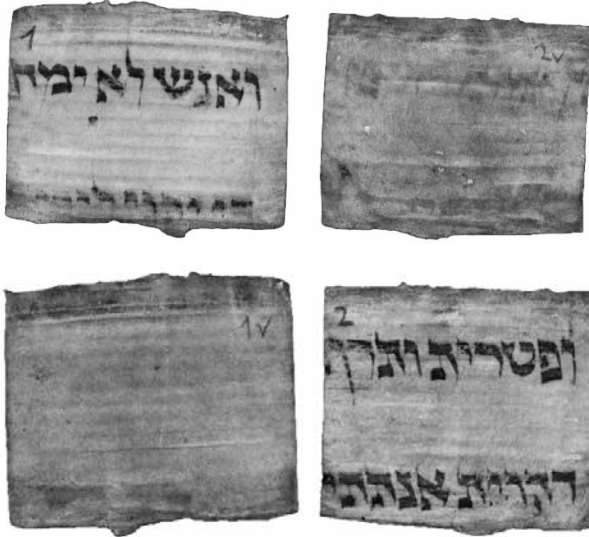 1
ואנש לא ימח
2v
1v
2
ופטרית ותרכ
דהוית אנתתי